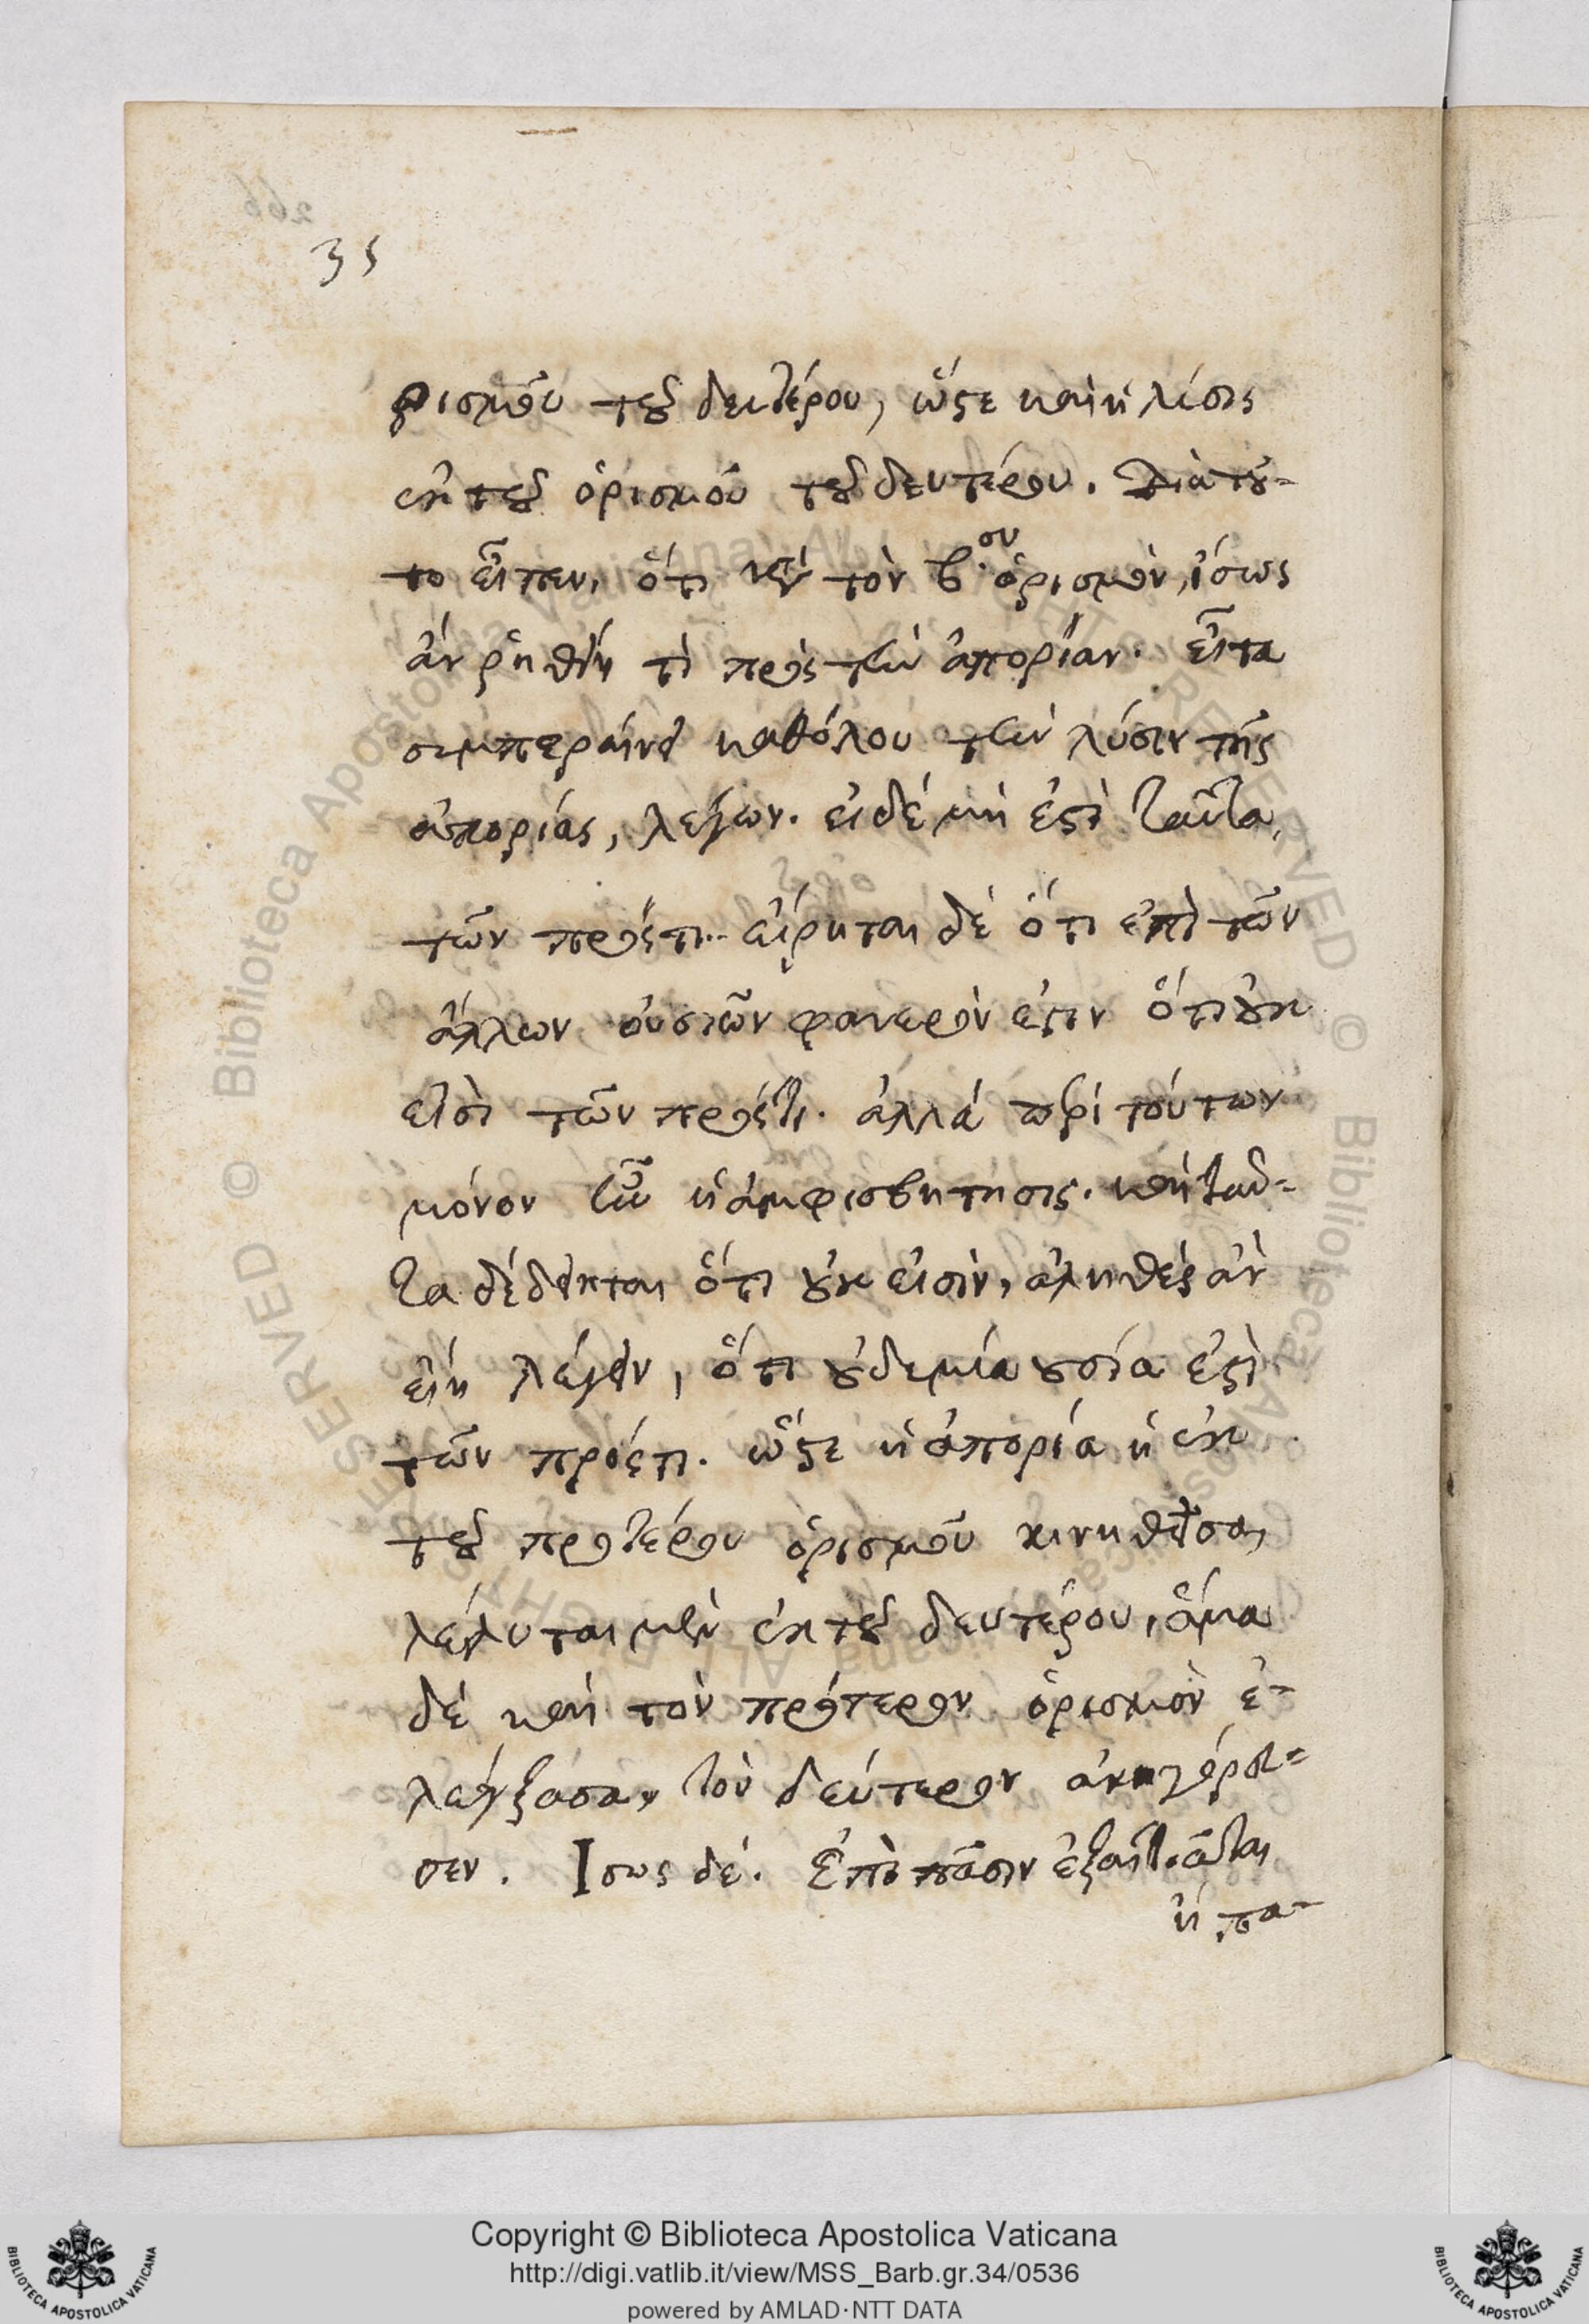 35
ρισμοῦ τοῦ δευτέρου, ὥστε καὶ ἡ λύσις
ἐκ τοῦ ὁρισμοῦ τοῦ δευτέρου. Διὰ τοῦ-
το εἶπεν, ὅτι κατὰ τὸν β.ον ὁρισμὸν, ἴσως
ἂν ῥηθείη τὶ πρὸς τὴν ἀπορίαν. εἶτα
συμπεραίνει καθόλου τὴν λύσιν τῆς
ἀπορίας, λέγων. εἰ δὲ μὴ ἐστὶ ταῦτα,
τῶν πρός τι. εἴρηται δὲ ὅτι ἐπὶ τῶν
ἄλλων οὐσιῶν φανερὸν ἐστιν ὅτι οὐκ
εἰσὶ τῶν πρός τι. ἀλλὰ περὶ τούτων
μόνον ἦν ἡ ἀμφισβήτησις. καὶ ταῦ-
τα δέδεικται ὅτι οὐκ εἰσὶν, ἀληθὲς ἂν
εἴη λέγειν, ὅτι οὐδεμία οὐσία ἐστὶ
τῶν πρός τι. ὥστε ἡ ἀπορία ἡ ἐκ
τοῦ προτέρου ὁρισμοῦ κινηθεῖσα,
λέλυται μὲν ἐκ τοῦ δευτέρου, ἅμα
δὲ καὶ τὸν πρότερον ὁρισμὸν ἐ-
λέγξασα, τὸν δεύτερον
σεν. Ἴσως δέ. Ἐπὶ πᾶσιν ἐξαιτιᾶται
ἡ πα-
Copyright © Biblioteca Apostolica Vaticana
http://digi.vatlib.it/view/MSS_Barb.gr.34/0536
powered by AMLAD·NTT DATA